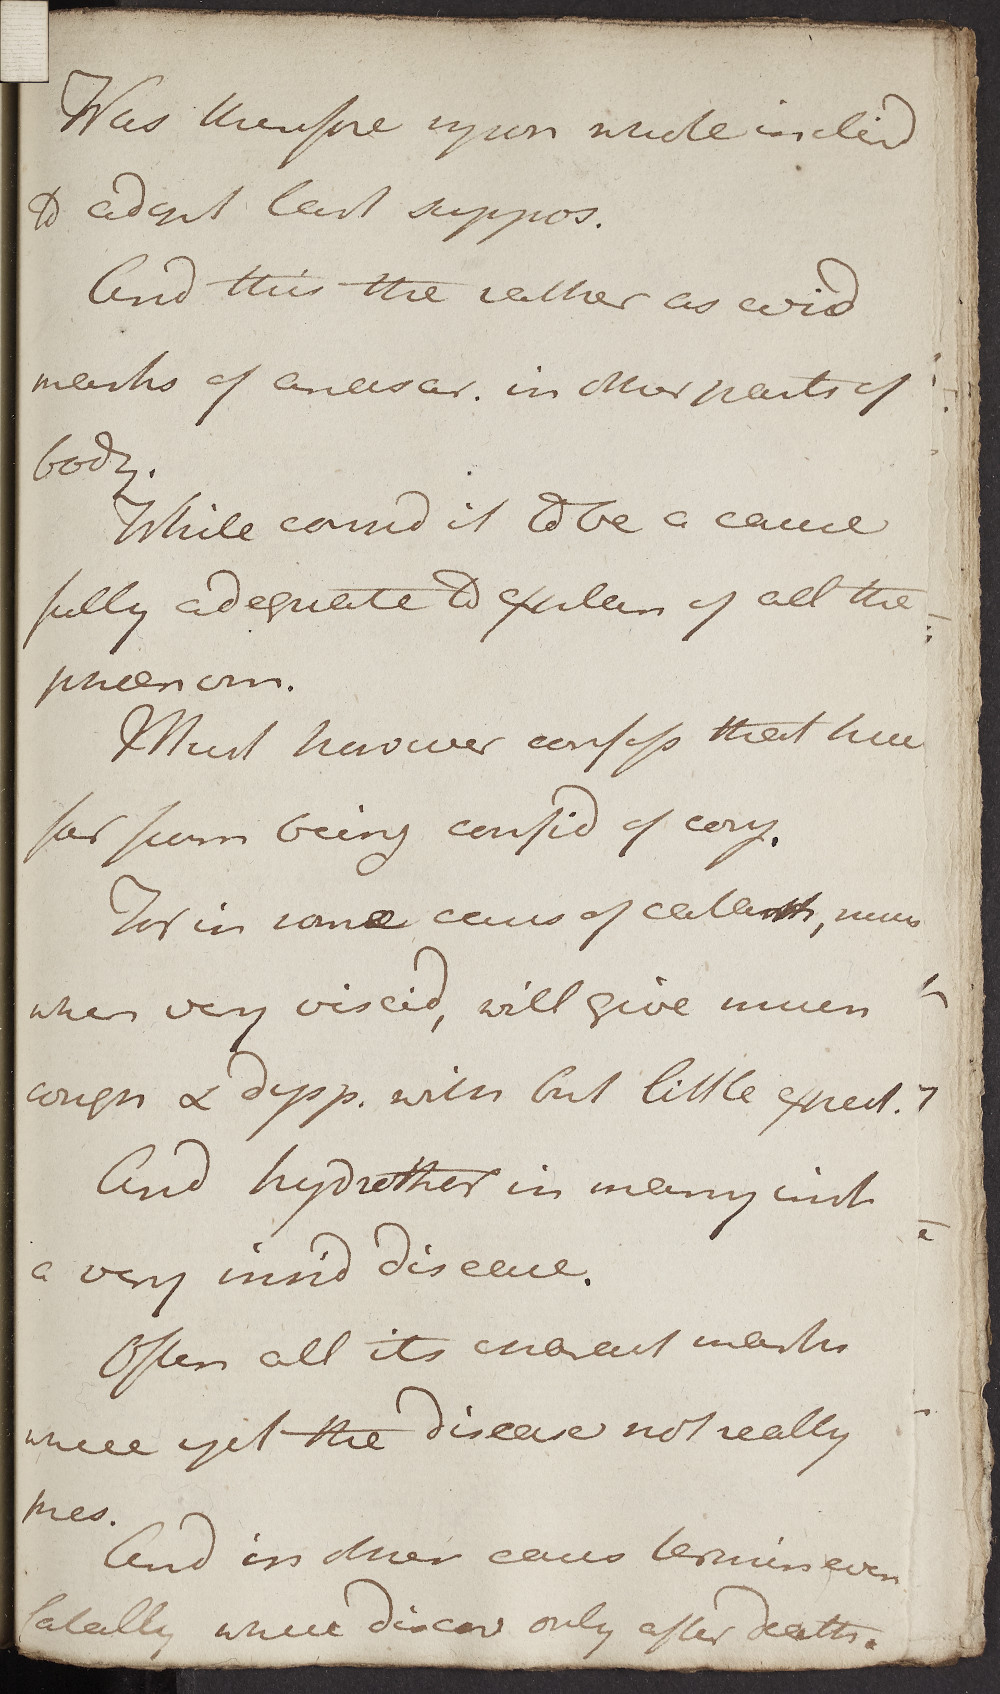 Was therefore upon whole inclin'd
to adopt last suppos.
And this the rather as evid
marks of anasar. in other parts of
body.
While consid it to be a cause
fully adequate to explan of all the
phaenom.
Must however confess that here
far from being confid of cony.
For in some cases of catarrh, mucus
when very viscid, will give much
cough & dysp. with but little expect.
And hydrothor in many inst
a very insid disease.
Often all its apparent marks
where yet the disease not really
pres.
And in other cases termin even
fatally where discov only after death.